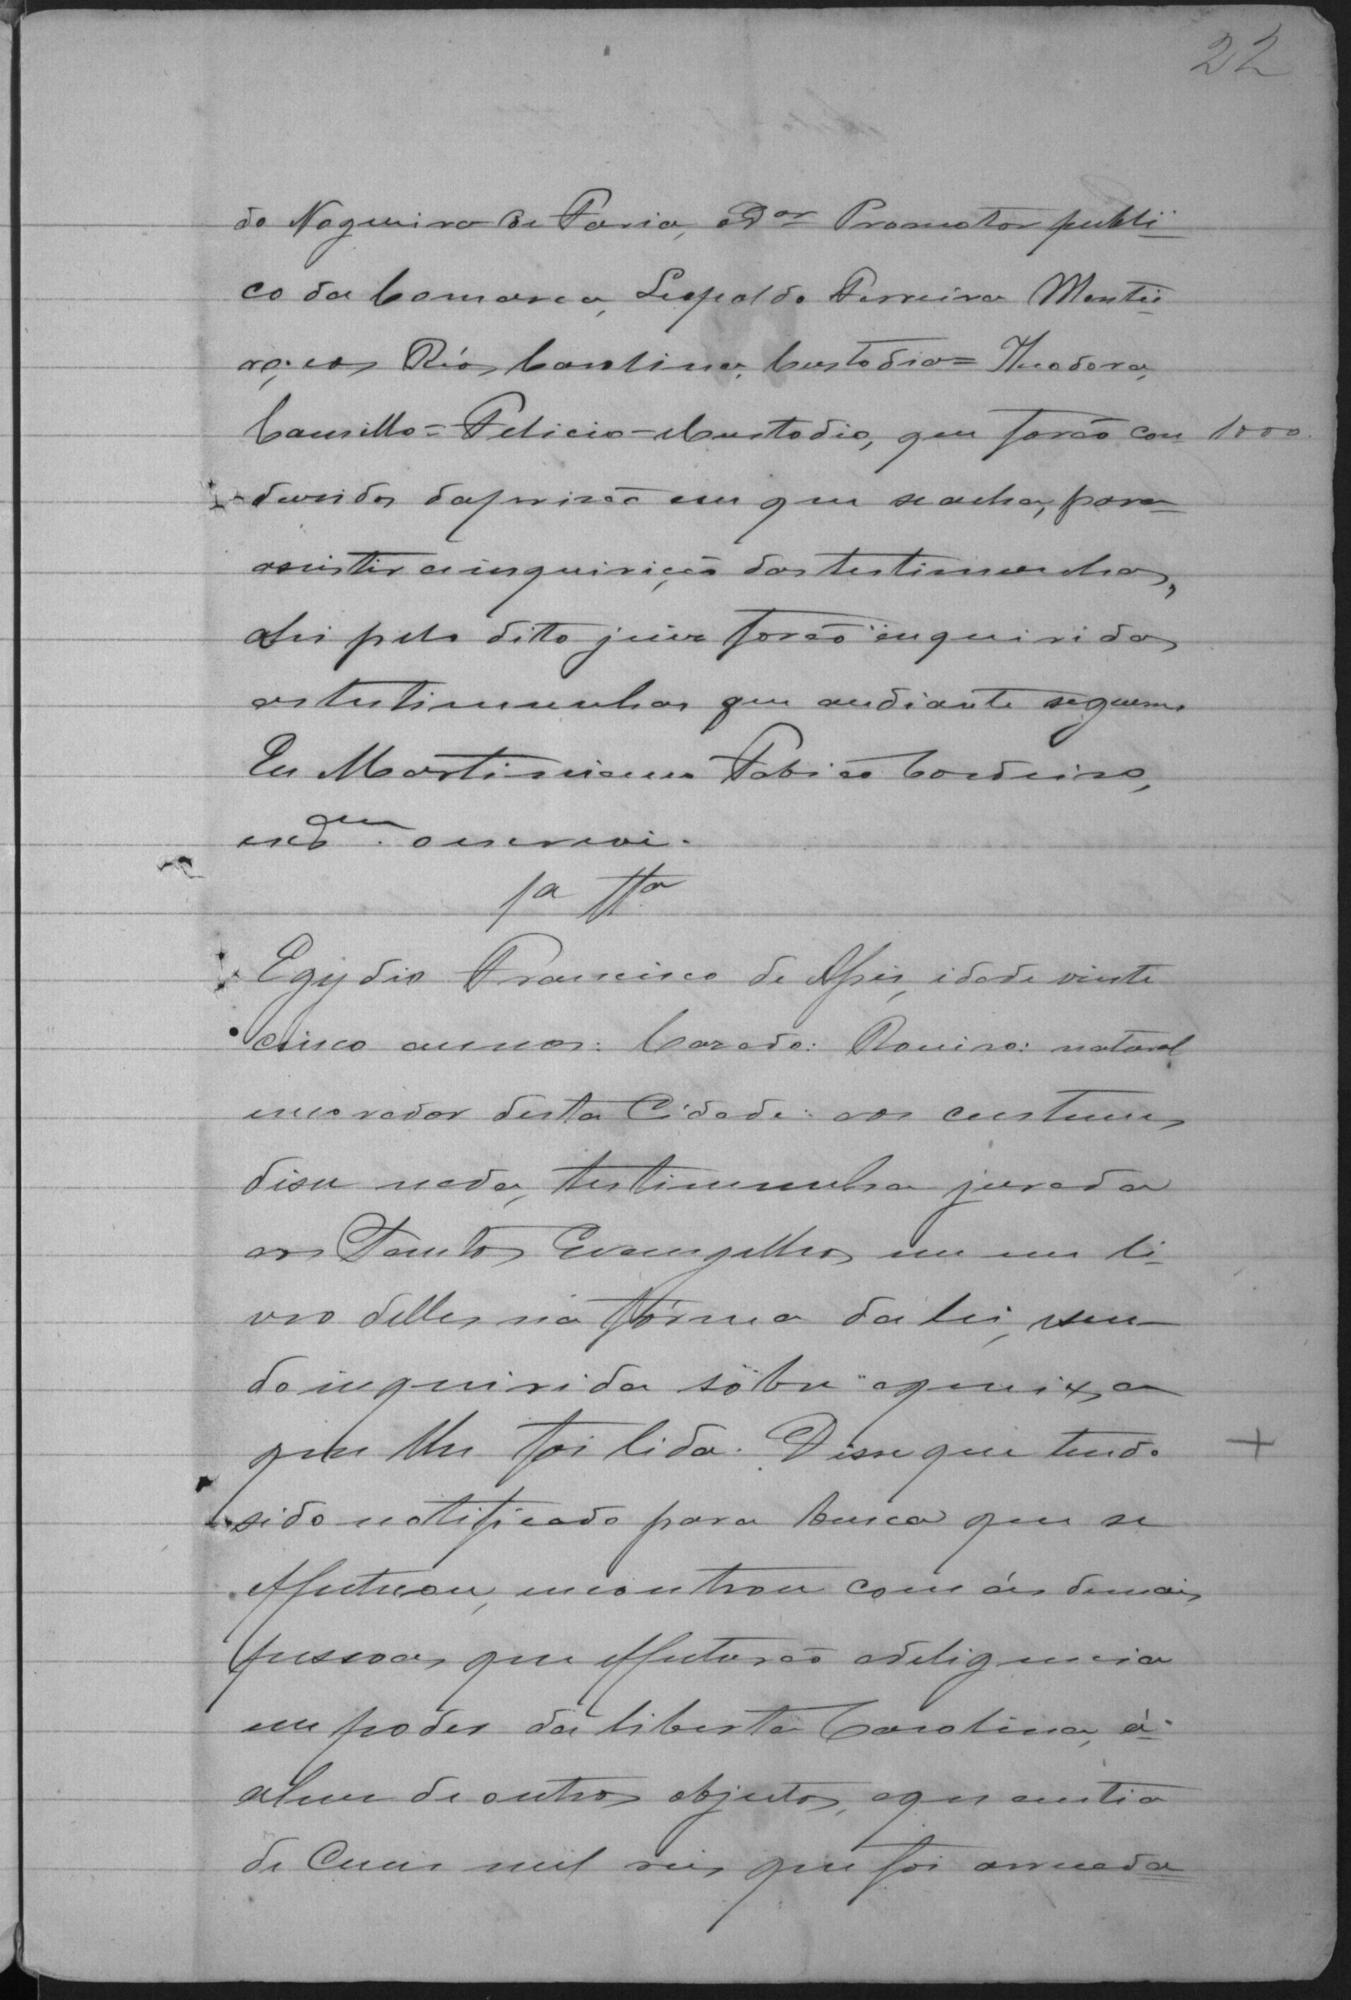 22
do Nogueira de Faria, o Dor Promotor publi
co da Comarca, Leopoldo Ferreira Montei
ro, e os Réos Carolina, Custodia = Theodora,
Camillo = Felicio = Custodio, que forão con 1000
dusidos da prisão em que se acha, para
assistir a inquirição das testimunhas,
ahi pelo dito juiz forão inquiridas
as testimunhas que andiante seguem
Eu Martiniano Fabião Cordeiro,
escram o escrevi.
1a Tta
Egydio Francisco de Assis, idade vinte
cinco annos: Cazado: natural
e morador desta Cidade: aos custumes
disse nada, testimunha jurada
aos Santos Evangelhos em um li
vro delles na fórma da lei, sen
do inquirida sobre a queixa
que lhe foi lida. Disse que tendo +
sido notificado para busca que se
effectuou, encontrou com ás demais
pessoas que effectuarão a deligencia
em poder da liberta Carolina, á
alem de outros objectos, a quantia
de Cem mil reis que foi arrecada